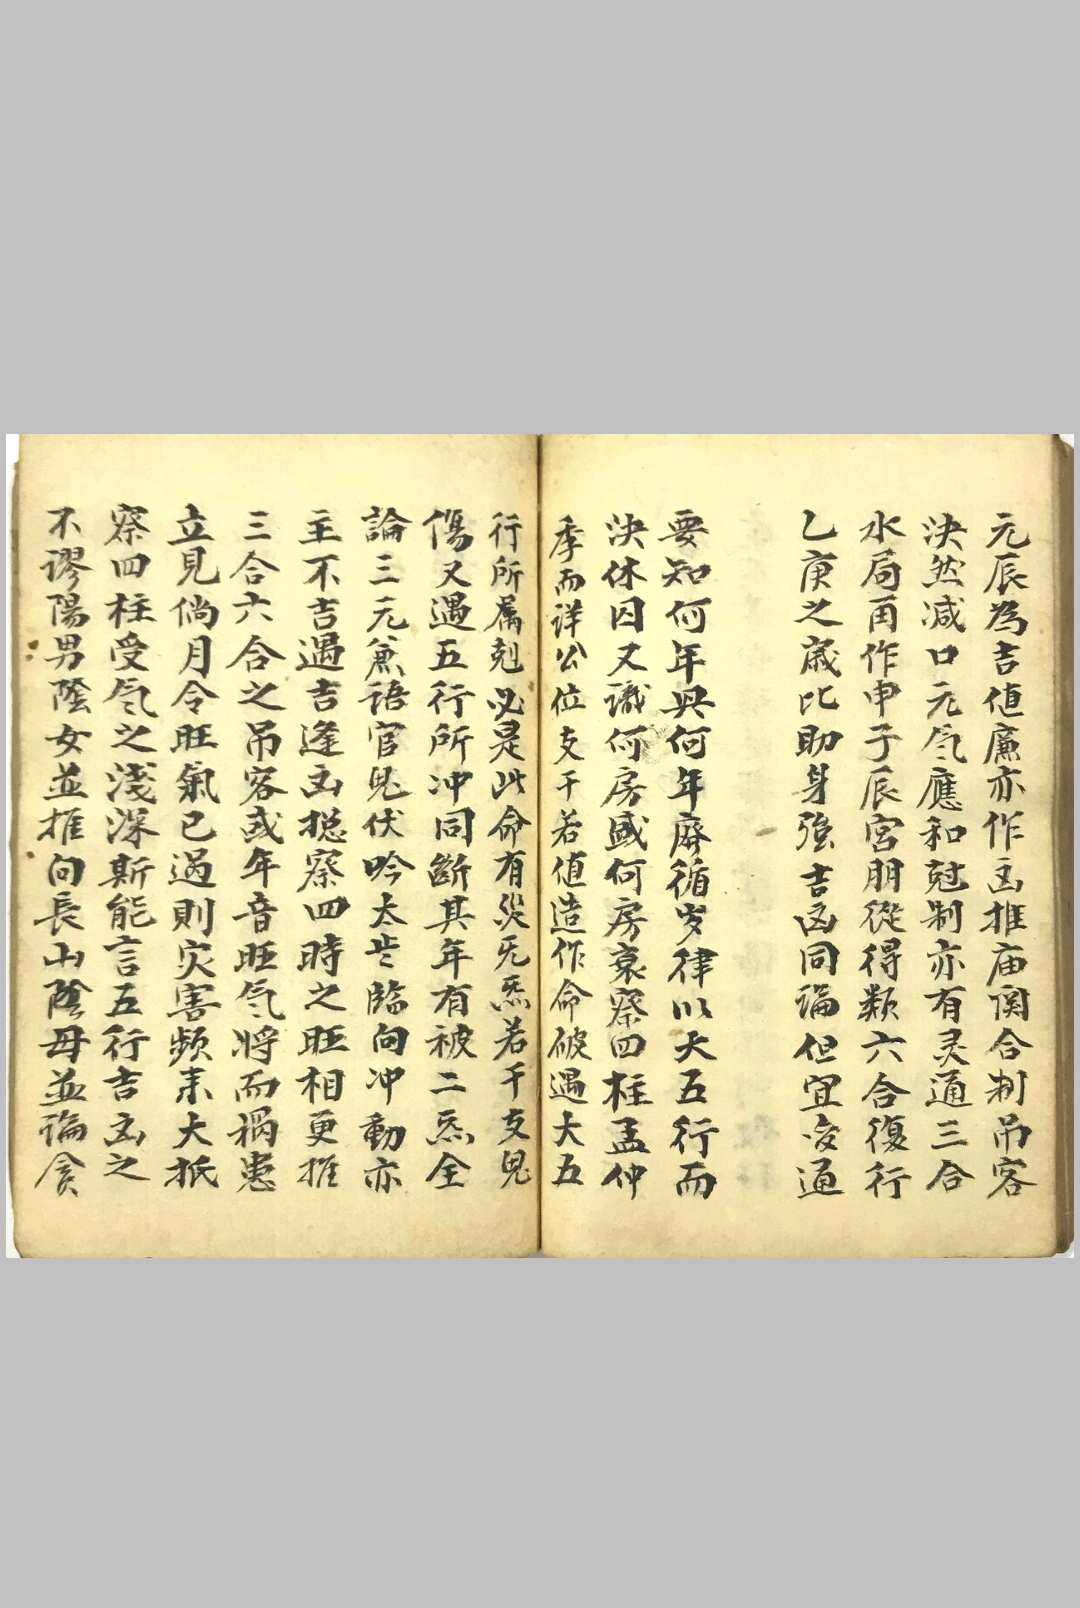 元辰為吉值廉亦作凶推庙閑合制吊客
決然减口元气應和尅制亦有灵通三合
水局用作申子辰宮朋從得類六合復行
乙庚之歲比助身強吉凶同論但宜变通
要知何年興何年廢循岁律以大五行而
決休囚又識何房盛何房衰察四柱孟仲
季而详公位支干若值造作命破遇大五
行所属尅必是此命有災无炁若干支鬼
傷又遇五行所冲同斷其年有被二炁全
論三元兼語官鬼伏吟太岁臨向冲動亦
主不吉遇吉逢凶揔察四時之旺相更推
三合六合之吊客或年音旺气将而禍患
立見倘月令旺氣已過則灾害頻来大抵
察四柱受气之淺深斯能言五行吉凶之
不謬陽男陰女並推向長山陰母並論贪